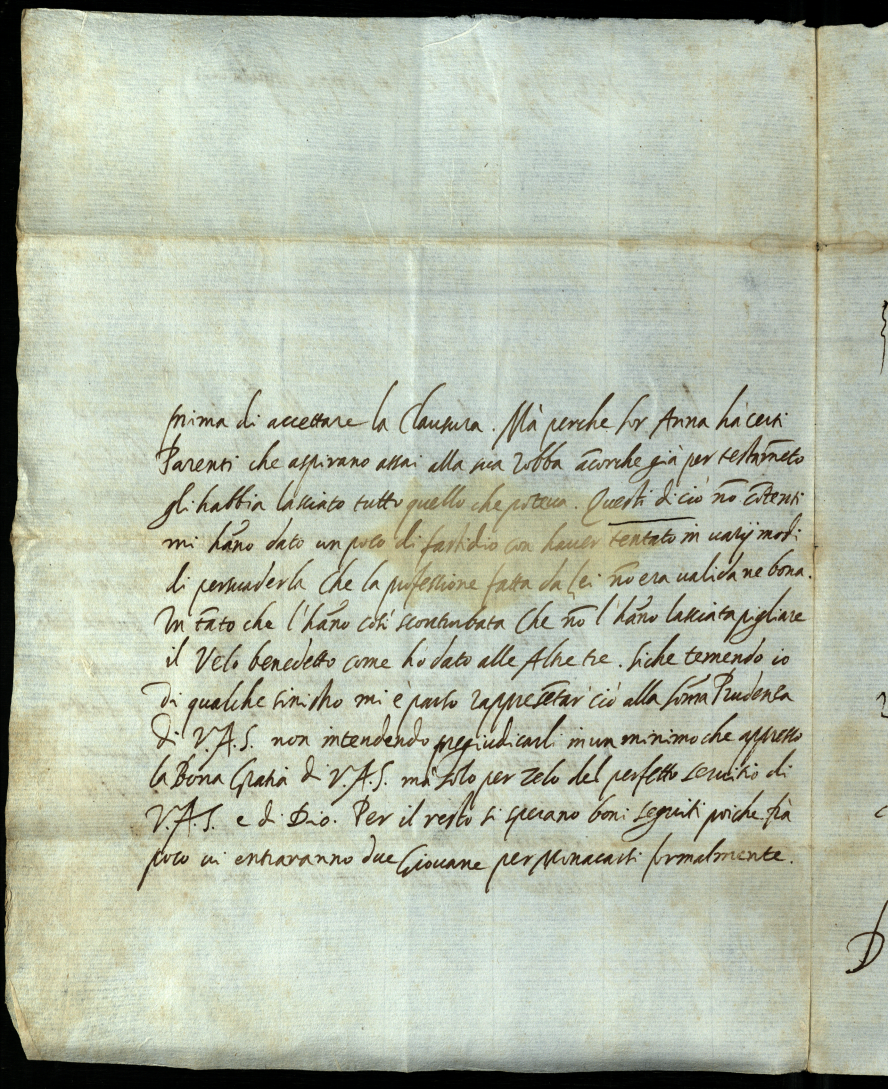 prima di accettare la Clausura. Mà perche sor Anna hà certi
Parenti che aspirano assai alla sua robba ācorche già per testam̄eto
gli habbia lasciato tutto quello che poteva. Questi di ciò nō cōtenti
mi hāno dato un poco di fastidio con haver tentato in varij modi
di persuaderla che la professione fatta da Lei nō era valida ne bona.
In tāto che l'hāno così sconturbata che nō l'hāno lasciata pigliare
il Velo benedetto come hò dato alle Altre tre. Siche temendo io
di qualche sinistro mi è parso rappresētar ciò alla som̄a Prudenza
di V.A.S. non intendendo pregiudicarli in un minimo che appresso
la Bona Gratia di V.A.S. mà solo per zelo del perfetto servitio di
V.A.S. e di Dio. Per il resto si sperano boni seguiti poiche frà
poco vi entraranno due Giovane per Monacarsi formalmente.
D